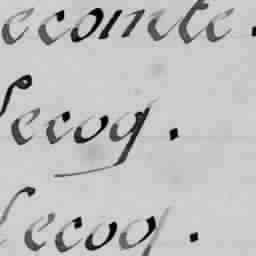 Lecomte.
Lecoq.
Lecoq.